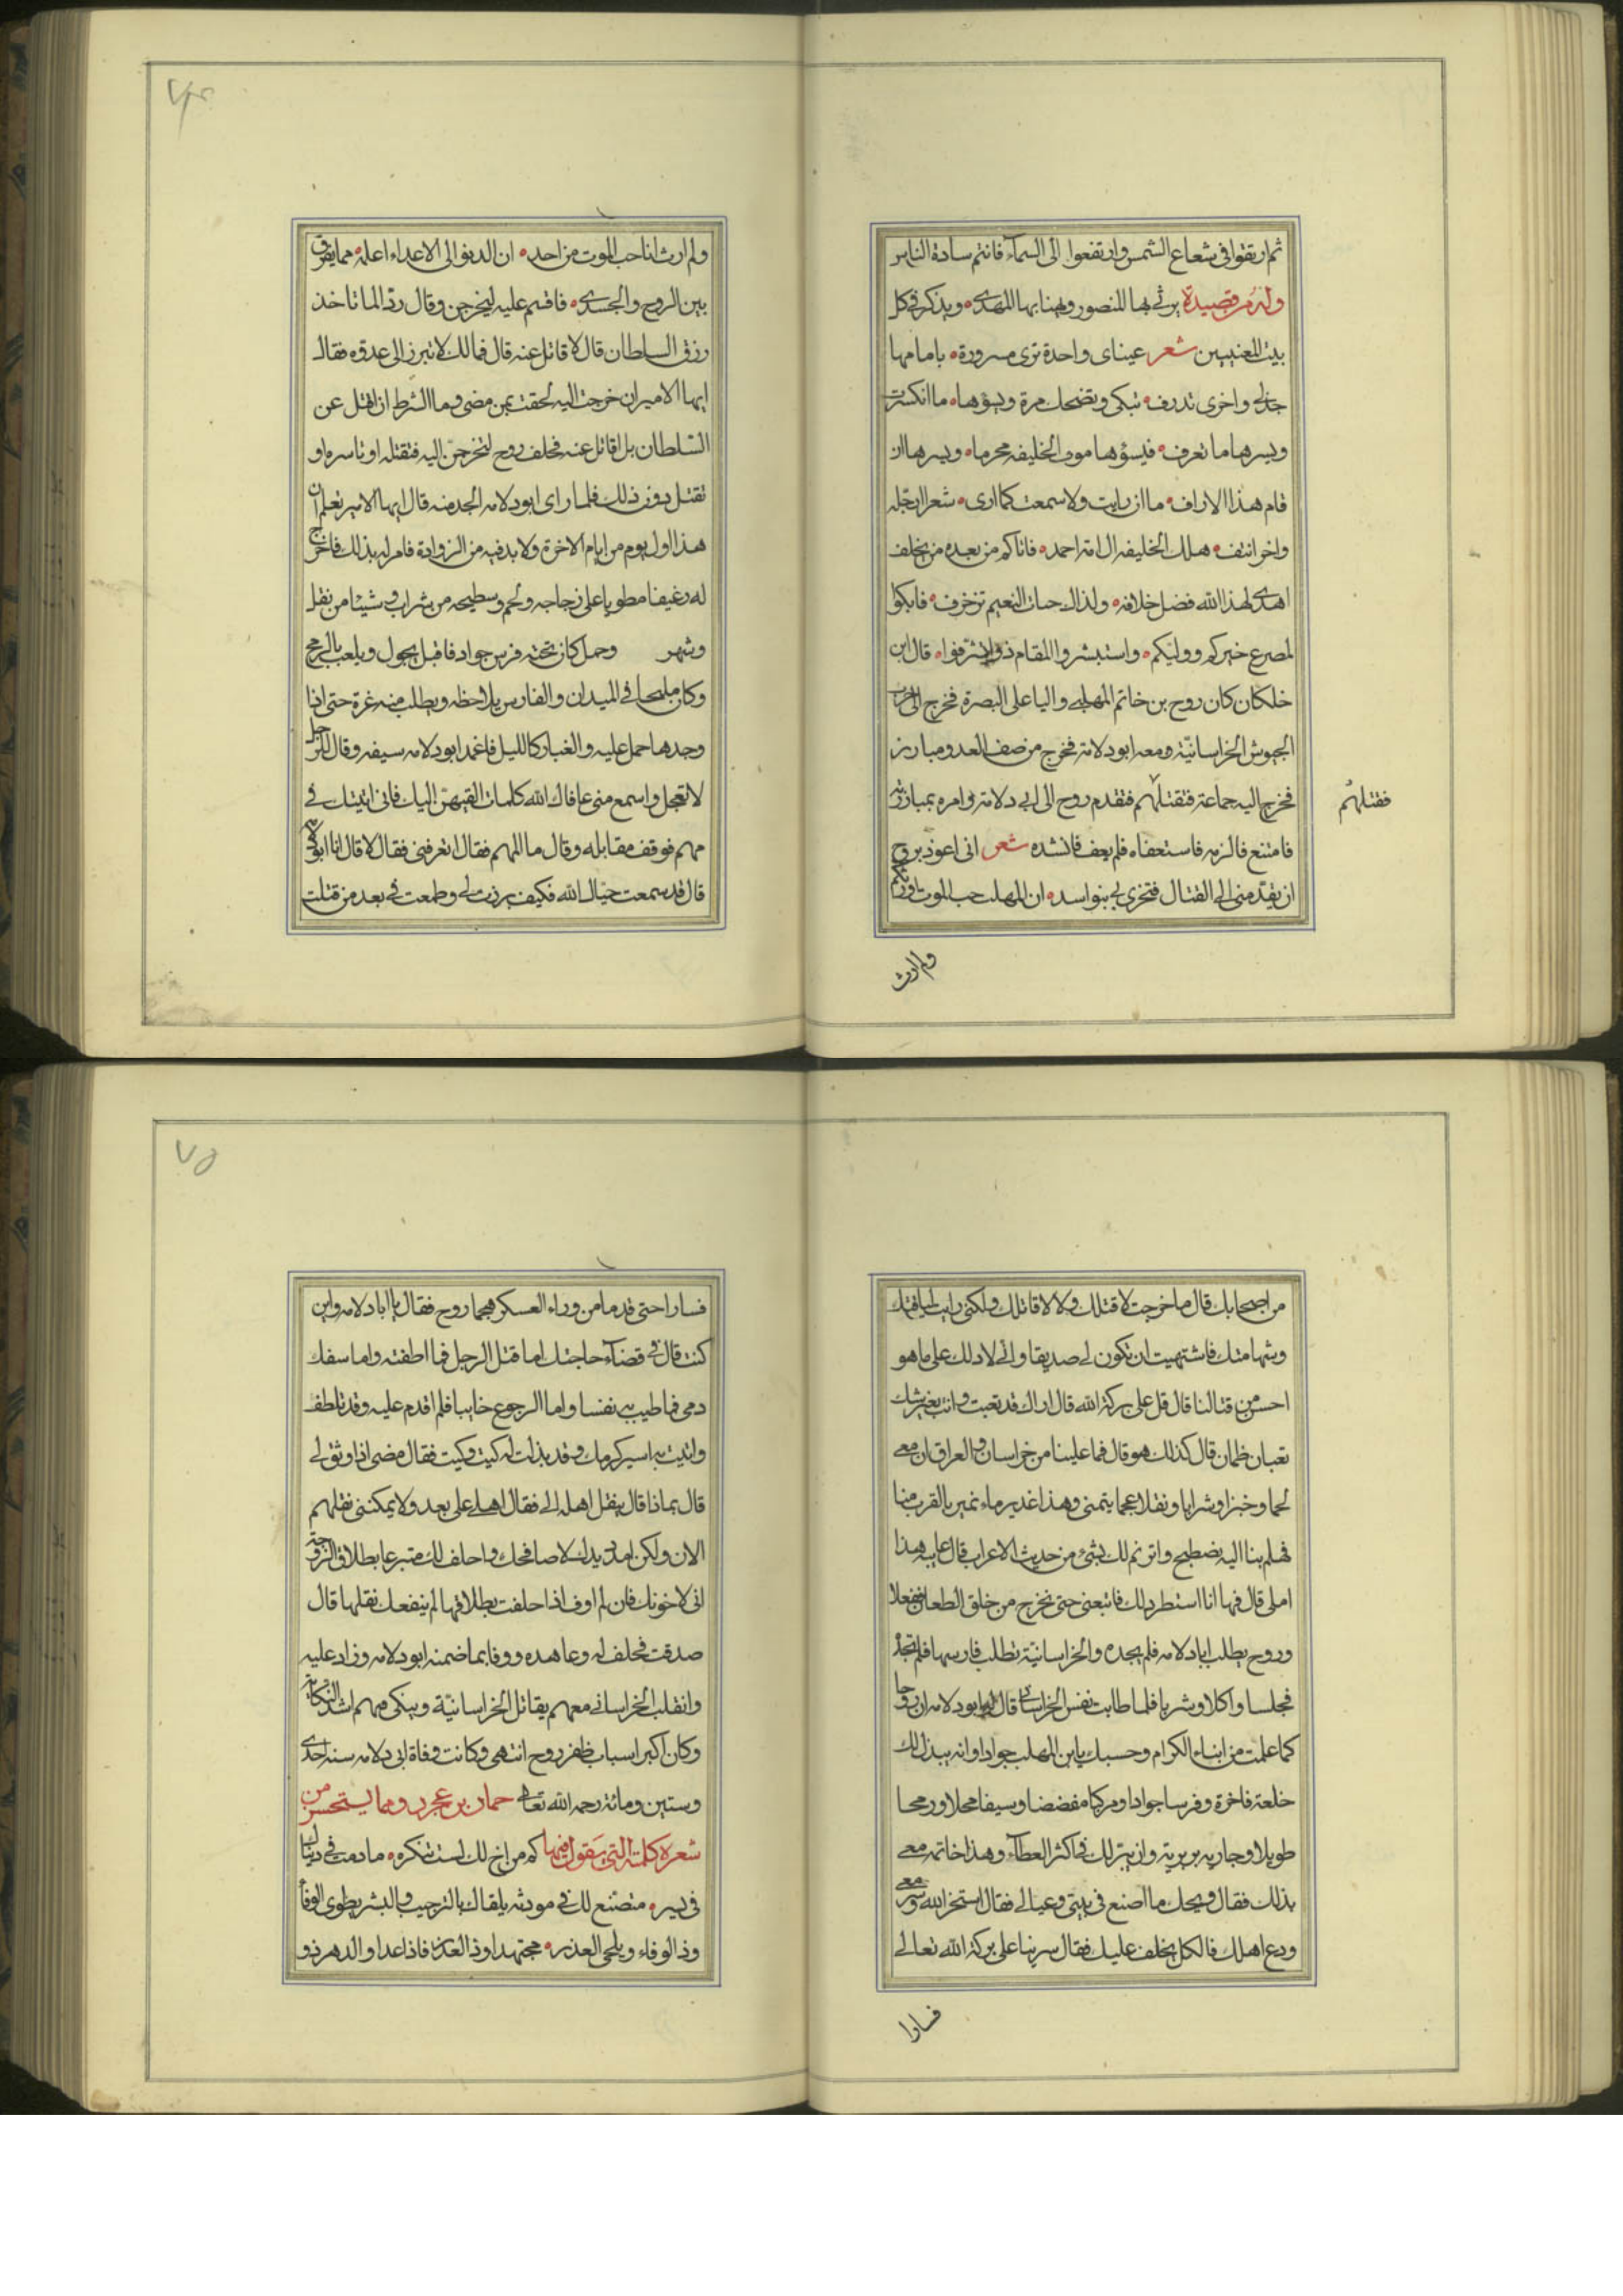 ثم ارتقوا في شعاع الشمس وارتفعوا الى السمآء فانتم سادة الناس
وله من قصيدة يرثي بها المنصور ويهنا بها المهدى ويذكر في كل
بيت المعنيين شعر عيناى واحدة ترى مسرورة بامامها
جذلى واخرى تذرف تبكى وتضحك مرة ويسؤها ما انكرت
ويسرها ما تعرف فيسؤها موت الخليفه محرما ويسرها ان
قام هذا الاراف ما ان رايت ولا سمعت كما ارى شعرا ارجله
واخر انتف هلك الخليفه ال امة احمد فاتاكم من بعده من يخلف
اهدى لهذا الله فضل خلافه ولذاك جنات النعيم تزخرف فابكوا
لمصرع خيركم ووليكم واستبشروا لمقام ذو اتشرفوا قال ابن
خلكان كان روح بن خاتم المهلبى واليا على البصرة فخرج الى حرب
الجيوش الخراسانيّة ومعه ابو دلامة فخرج من صف العدو مبارز
فخرج اليه جماعة فقتلهم فتقدم روح الى ابى دلامة وامره بمبارزته
فقتلهم
فامتنع فالزمه فاستعفاه فلم يعف فانشده شعر انى اعوذ بروح
ان يقدمنى الى القتال فتخزى بى بنو اسد ان المهلب حب الموت اورثكم
ولم ارث
ولم ارث انا حب الموت من احد ان الدنو الى الاعداء اعلمه مما يفرق
بين الروح والجسد فاقسم عليه ليخرجن وقال ردّ الما تاخذ
رزق السلطان قال لاقاتل عنه قال فمالك لا تبرز الى عدوه فقال
ايها الامير ان خرجت اليه لحقت بمن مضى وما الشرط ان اقتل عن
السّلطان بل اقاتل عنه فحلف روح لتخرجنّ اليه فتقتله او تاسره او
تقتل دون ذلك فلما راى ابو دلامه الجد منه قال ايها الامير تعلم ان
هذا اول يوم من ايام الاخرة ولا بد فيه من الزوادة فامر له بذلك فاخرج
له رغيفا مطويا على زجاجه ولحم وسطيحه من شراب وشيئا من نقل
وشهر وحمل كان تحته فرس جواد فاقبل يجول ويلعب بالرمح
وكان مليحا في الميدان والفارس يلاحظه ويطلب منه غرة حتى اذا
وجدها حمل عليه والغبار كالليل فاغمد ابو دلامه سيفه وقال للرجل
لا تعجل واسمع منى عافاك الله كلمات القيهنّ اليك فانى اتيتك فى
مهم فوقف مقابله وقال ما المهم فقال اتعرفنى فقال لا قال انا ابو دلامه
قال قد سمعت حيّاك الله فكيف برزت لى وطمعت فى بعد من قتلت
من اصحابك قال ما خرجت لاقتلك ولا لاقاتلك ولكنى رايت لباقتك
وشهامتك فاشتهيت ان تكون لى صديقا وانى لادلك على ما هو
احسن من قتالنا قال قل على بركة الله قال اراك قد تعبت وانت بغير شك
تعبان ظمان قال كذلك هو قال فما علينا من خراسان والعراق ان معى
لحما وخبزا وشرابا ونقلا عجا يتمنى وهذا غدير ماء نمير بالقرب منا
فهلم بنا اليه نصطبح واترنم لك بشئ من حديث الاعراب قال غايه هذا
املى قال فها انا استطرد لك فاتبعنى حتى نخرج من خلق الطعان ففعلا
وروح يطلب ابا دلامه فلم يجده والخراسانيّة تطلب فارسها فلم تجد
فجلسا واكلا وشربا فلما طابت نفس الخراسانى قال له ابو دلامه ان روحا
كما علمت من ابناء الكرام وحسبك يا بن المهلب جوادا وانه يبذل لك
خلعة فاخرة وفرسا جوادا ومركبا مفضضا وسيفا محلا ورمحا
طويلا وجاريه بربرية وان يتركك فى اكثر العطآء وهذا خاتمه معى
بذلك فقال ويحك ما اصنع فى بيتى وعيالى فقال استخر الله وسر معى
ودع اهلك فالكل يخلف عليك فقال سر بنا على بركة الله تعالى
فسارا
فسارا حتى قدما من وراء العسكر فهجما روح فقال يا ابا دلامه واين
كنت قال فى قضآء حاجتك اما قتل الرجل فما اطقته واما سفك
دمى فما طيب به نفسا واما الرجوع خايبا فلم اقدم عليه وقد تلطف
واتيت به اسير كرمك وقد بذلت له كيت وكيت فقال مضى اذا وثق لى
قال بماذا قال ينقل اهله الى فقال اهلى على بعد ولا يمكننى نقلهم
الان ولكن امدد يدك لاصافحك واحلف لك متبرعا بطلاق الزوجة
انى لا خونك فان لم اوف اذا حلفت بطلاقها لم ينفعك نقلها قال
صدقت فحلف له وعاهده ووفا بما ضمنه ابو دلامه وزاد عليه
وانقلب الخراسانى معهم يقاتل الخراسانيّة وينكى فيهم اشد النكاية
وكان اكبر اسباب ظفر روح انتهى وكانت وفاة ابى دلامه سنه احدى
وستين ومائة رحمه الله تعالى حماد بن عجرد ومما يستحسن من
شعره كلمته التى يقول فيها كم من اخ لك لست تنكره ما دمت فى دنياك
فى يسر متصنع لك فى مودته يلقاك بالترحيب والبشر يطوى الوفا
وذا الوفاء ويلحى الغدر مجتهدا وذا الغدر فاذا عدا والدهر ذو